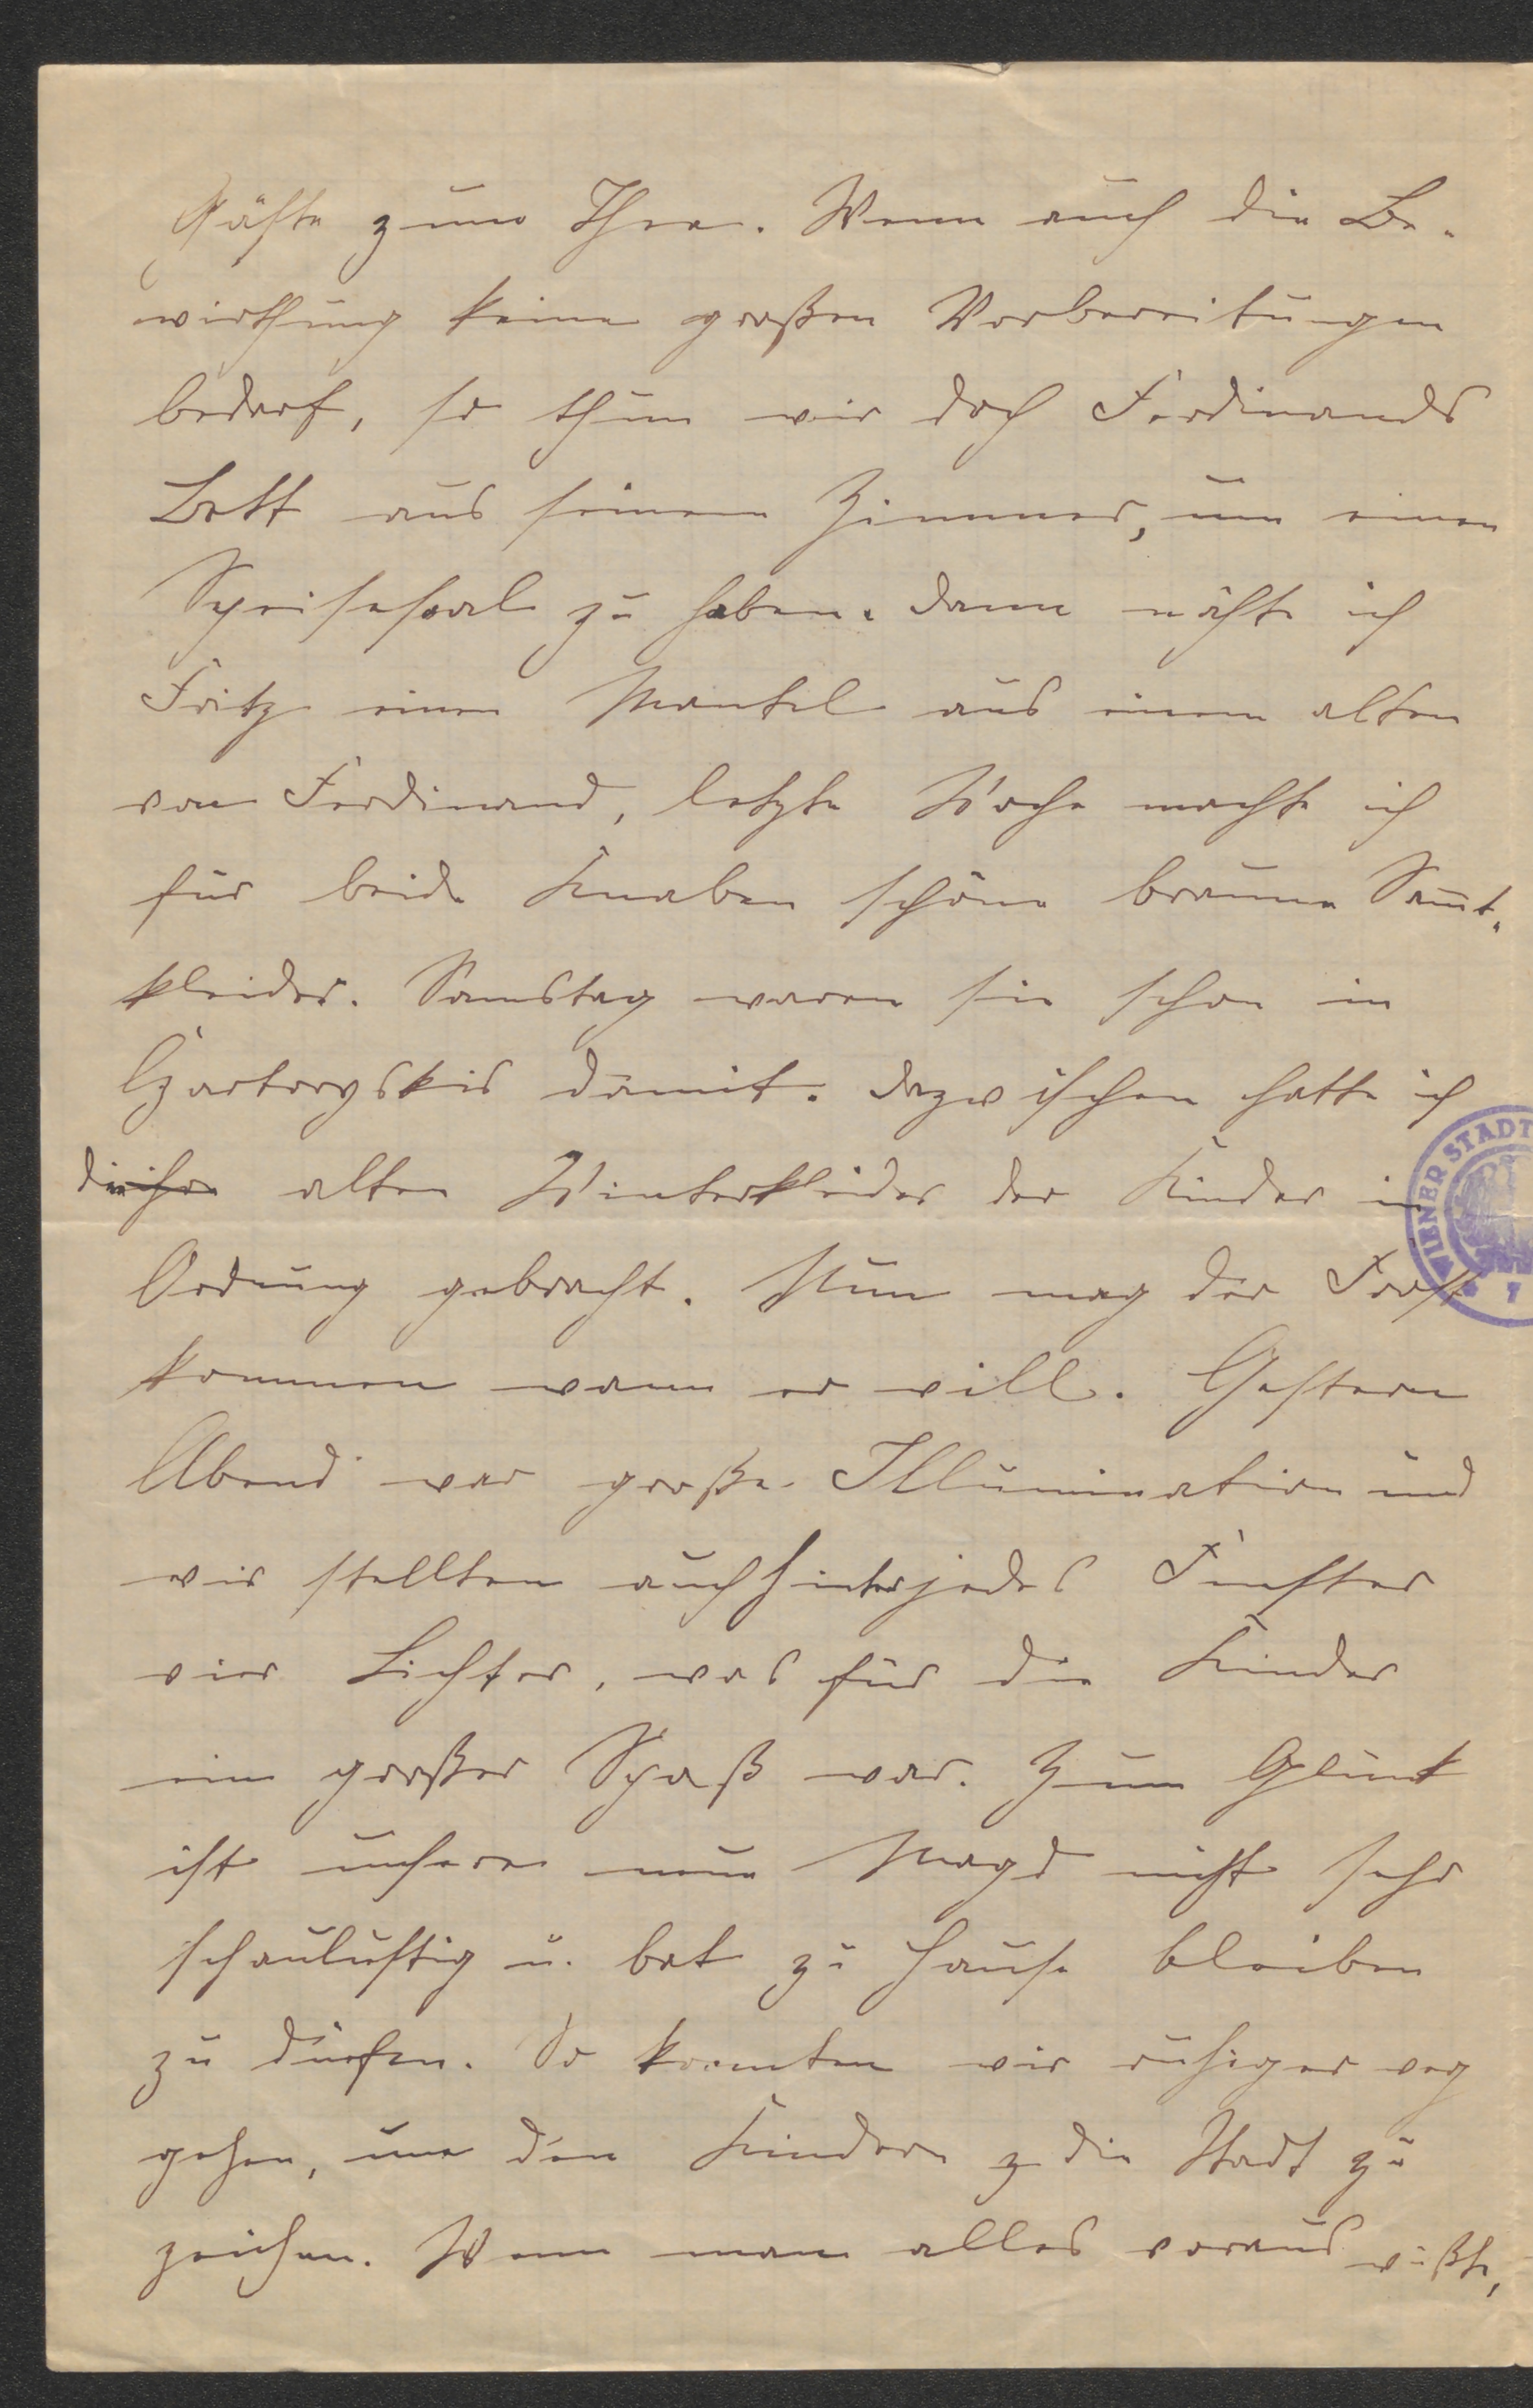 Gäste zum Thee. Wenn auch die Be-
wirthung keine großen Vorbereitungen
bedarf, so thun wir doch Ferdinands
Bett aus seinem Zimmer, um einen
Speisesaal zu haben. Dann nähte ich
Fritz einen Mantel aus einem alten
von Ferdinand, letzte Woche machte ich
für beide Knaben schöne braune Samt-
kleider. Samstag waren sie schon in
Czartoryskis damit. Dazwischen hatte ich
die ihre alten Winterkleider der Kinder in
Ordnung gebracht. Nun mag der Frost
kommen wann er will. Gestern
Abend war große Illumination und
wir stellten auch hinter jedes Fenster
vier Lichter, was für die Kinder
ein großer Spaß war. Zum Glück
ist unsere neue Magd nicht sehr
schaulustig u. bat zu Hause bleiben
zu dürfen. So konnten wir ruhiger weg
gehen, um den Kindern die Stadt zu
zeichen. Wenn man alles voraus wüßte,
WIENER STADT